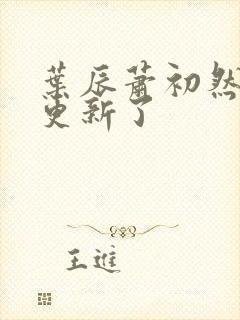 葉辰蕭初然
更新了
王進